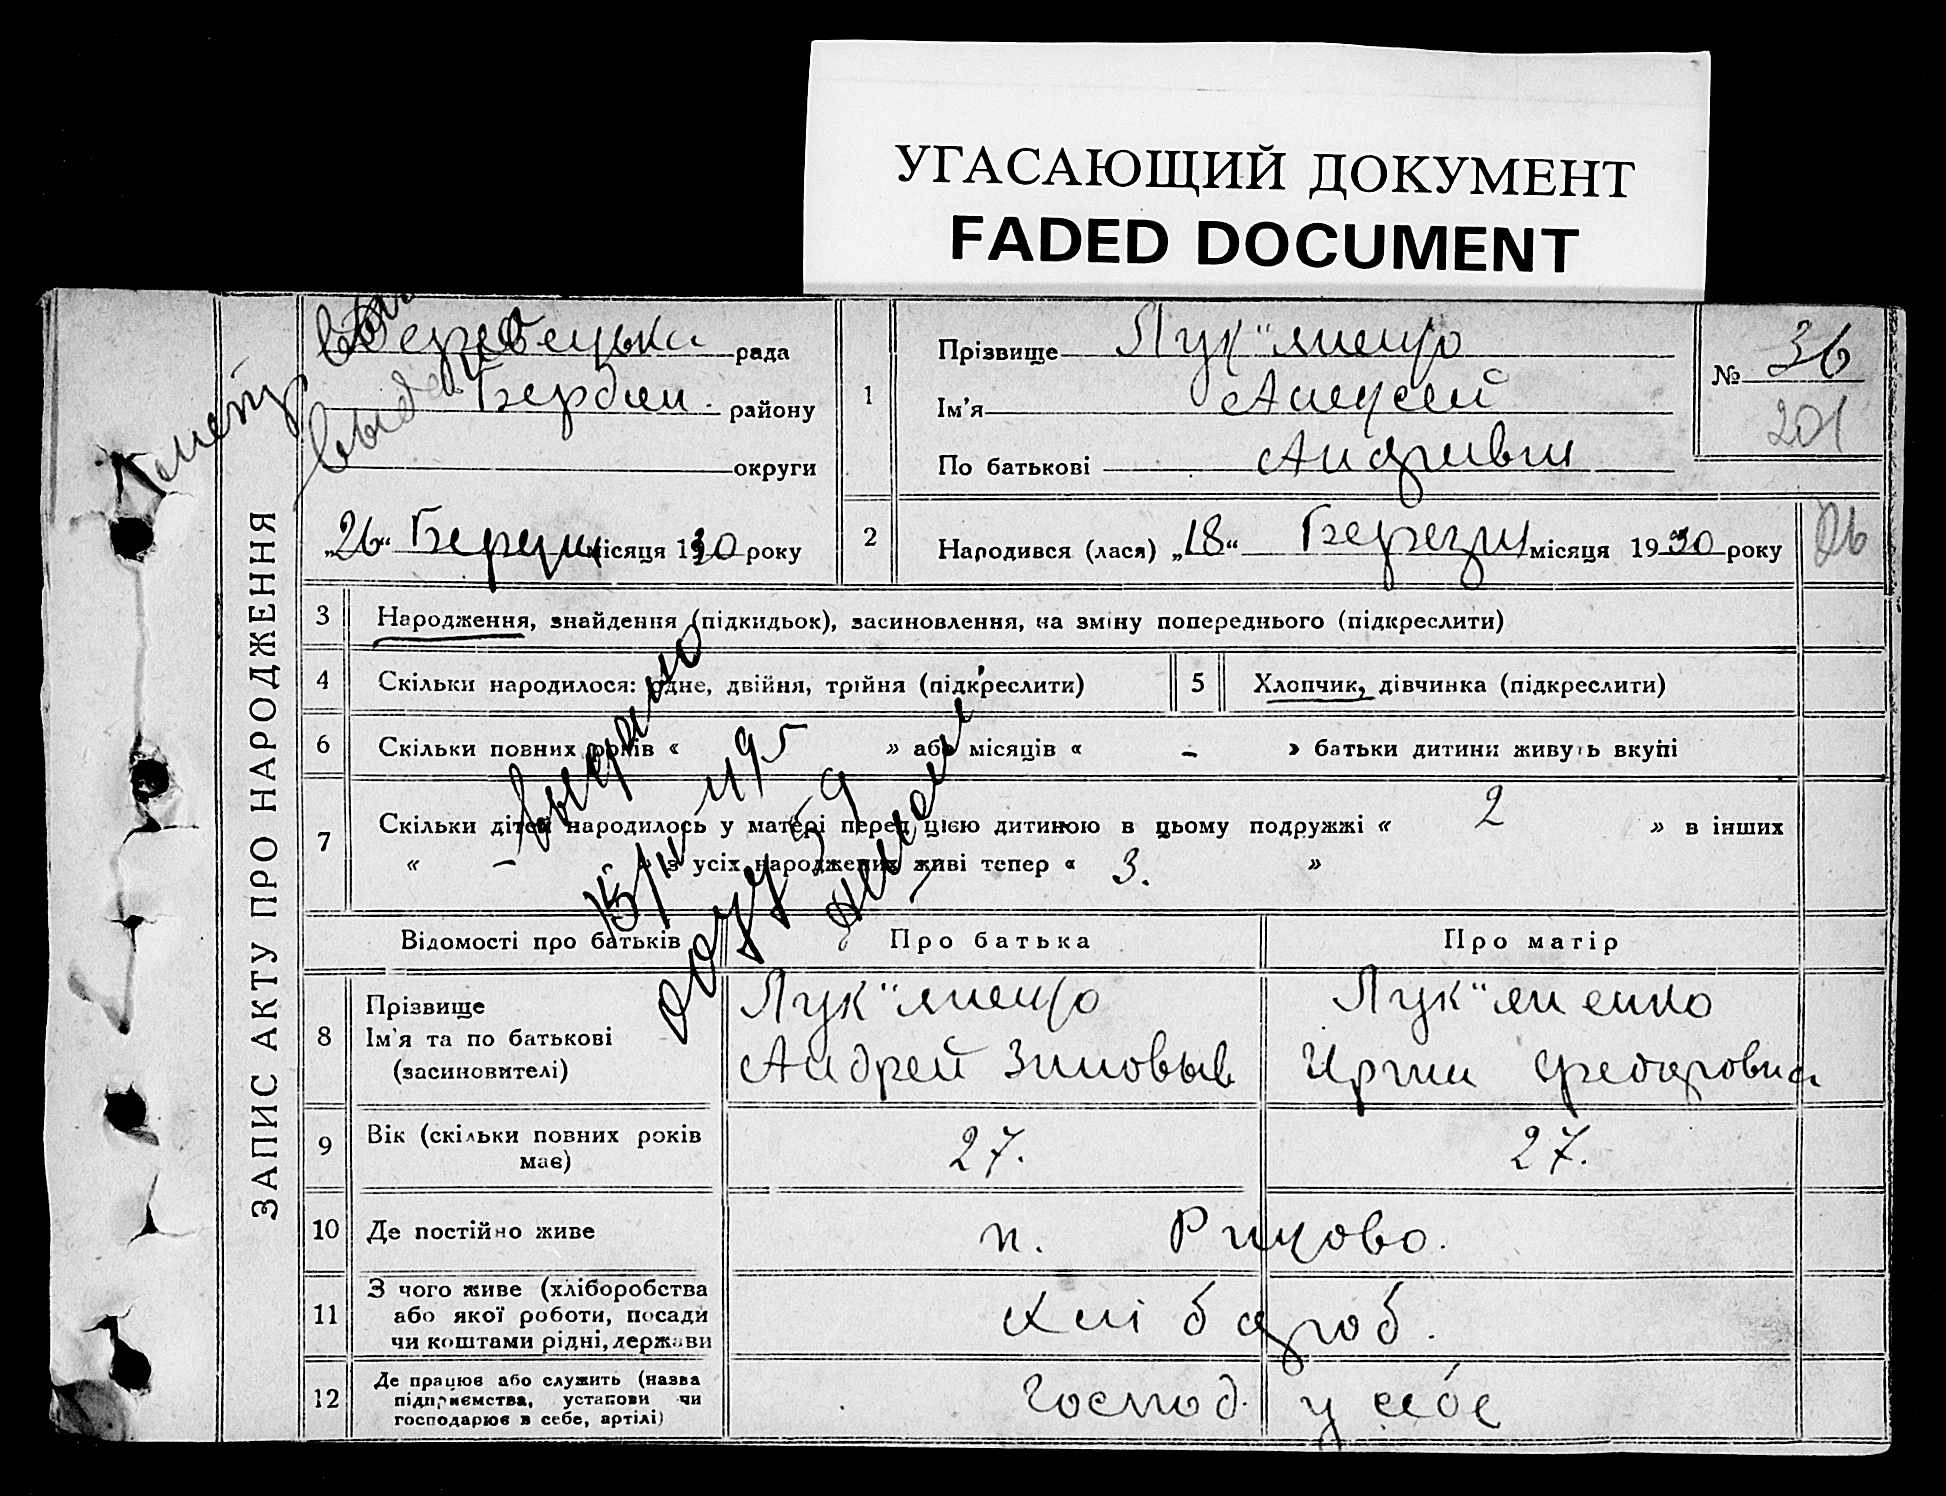 УГАСАЮЩИЙ ДОКУМЕНТ
FADED DOCUMENT
ЗАПИС АКТУ ПРО НАРОДЖЕННЯ
рада
Бердян. району
округи
„26“ місяця 1930 року
1
Прізвище Лук"яненко
Ім'я Алексей
По батькові
№ 36
201
2
Народився (лася) „18“ Березня місяця 1930 року
26
3 Народження, знайдення (підкидьок), засиновлення, на зміну попереднього (підкреслити)
4 Скільки народилося: одне, двійня, трійня (підкреслити)
5 Хлопчик, дівчинка (підкреслити)
6 Скільки повних років « » або місяців « – » батьки дитини живуть вкупі
7 Скільки дітей народилось у матері перед цією дитиною в цьому подружжі « 2 » в інших
« – » з усіх народжених живі тепер « 3. »
Відомості про батьків Про батька Про матір
8 Прізвище
Ім'я та по батькові
(засиновителі)
Лук"яненко
Андрей Зиновьев
Лук"яненко
Федоровна
9 Вік (скільки повних років
має)
27. 27.
10 Де постійно живе
11 З чого живе (хліборобства
або якої роботи, посади
чи коштами рідні, держави
Хлібороб.
12 Де працює або служить (назва
підприємства, установи чи
господарює в себе, артілі)
Господ. у себе